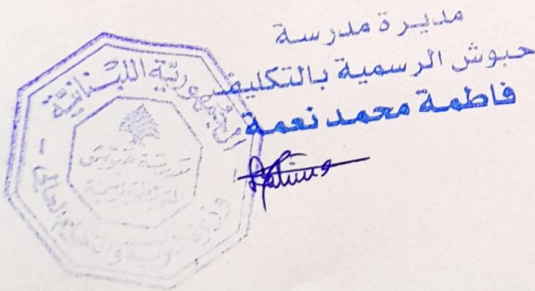 مديرة مدرسة
حبوش الرسمية بالتكليف
فاطمة محمد نعمة
الجمهورية اللبنانية
مدرسة حبوش
وزارة التربية والتعليم العالي